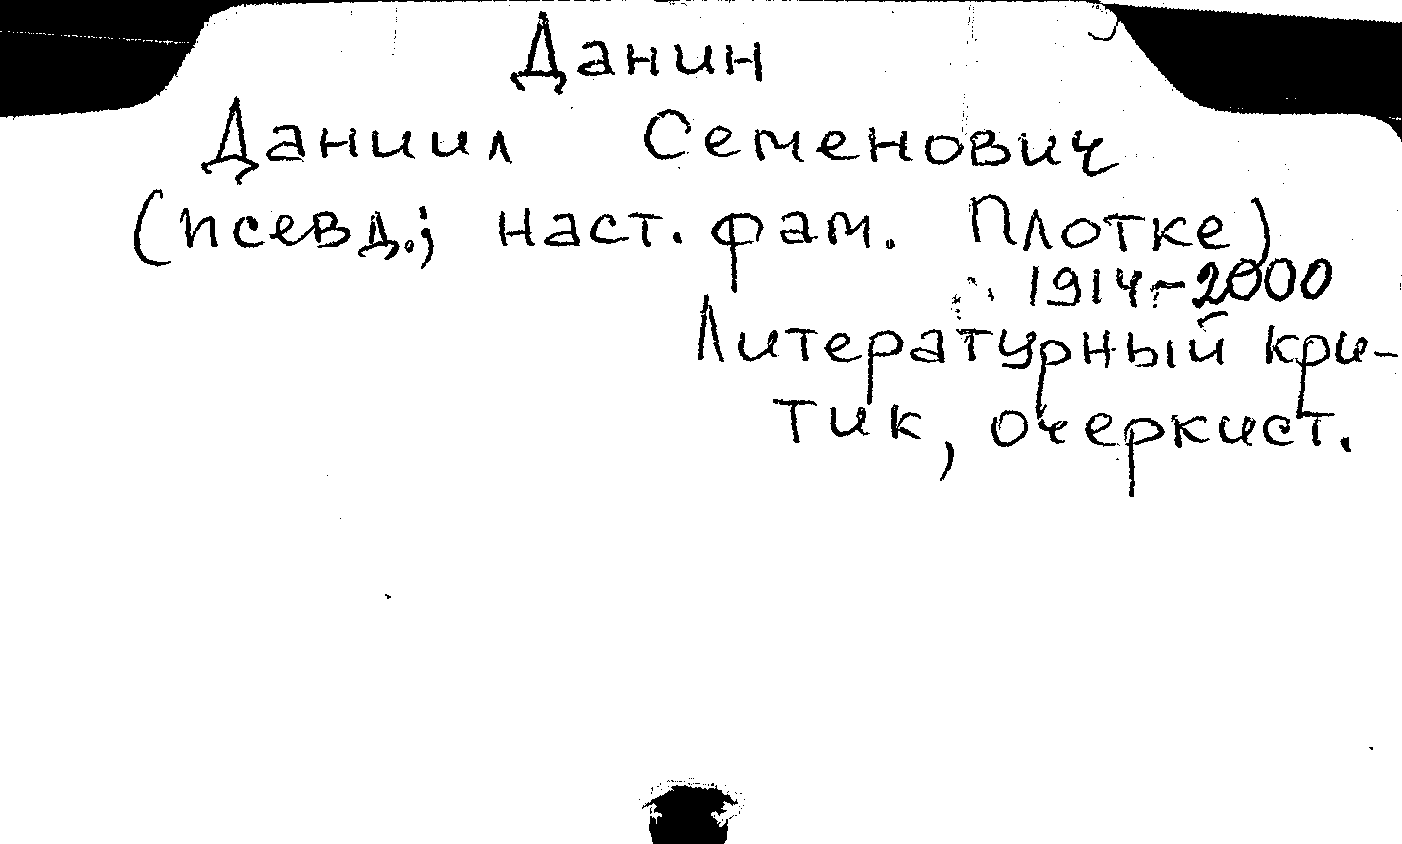 Данин
Даниил Семенович
(псевд.; наст. фам. Плотке)
1914-2000
Литературный кри-
тик, очеркист.